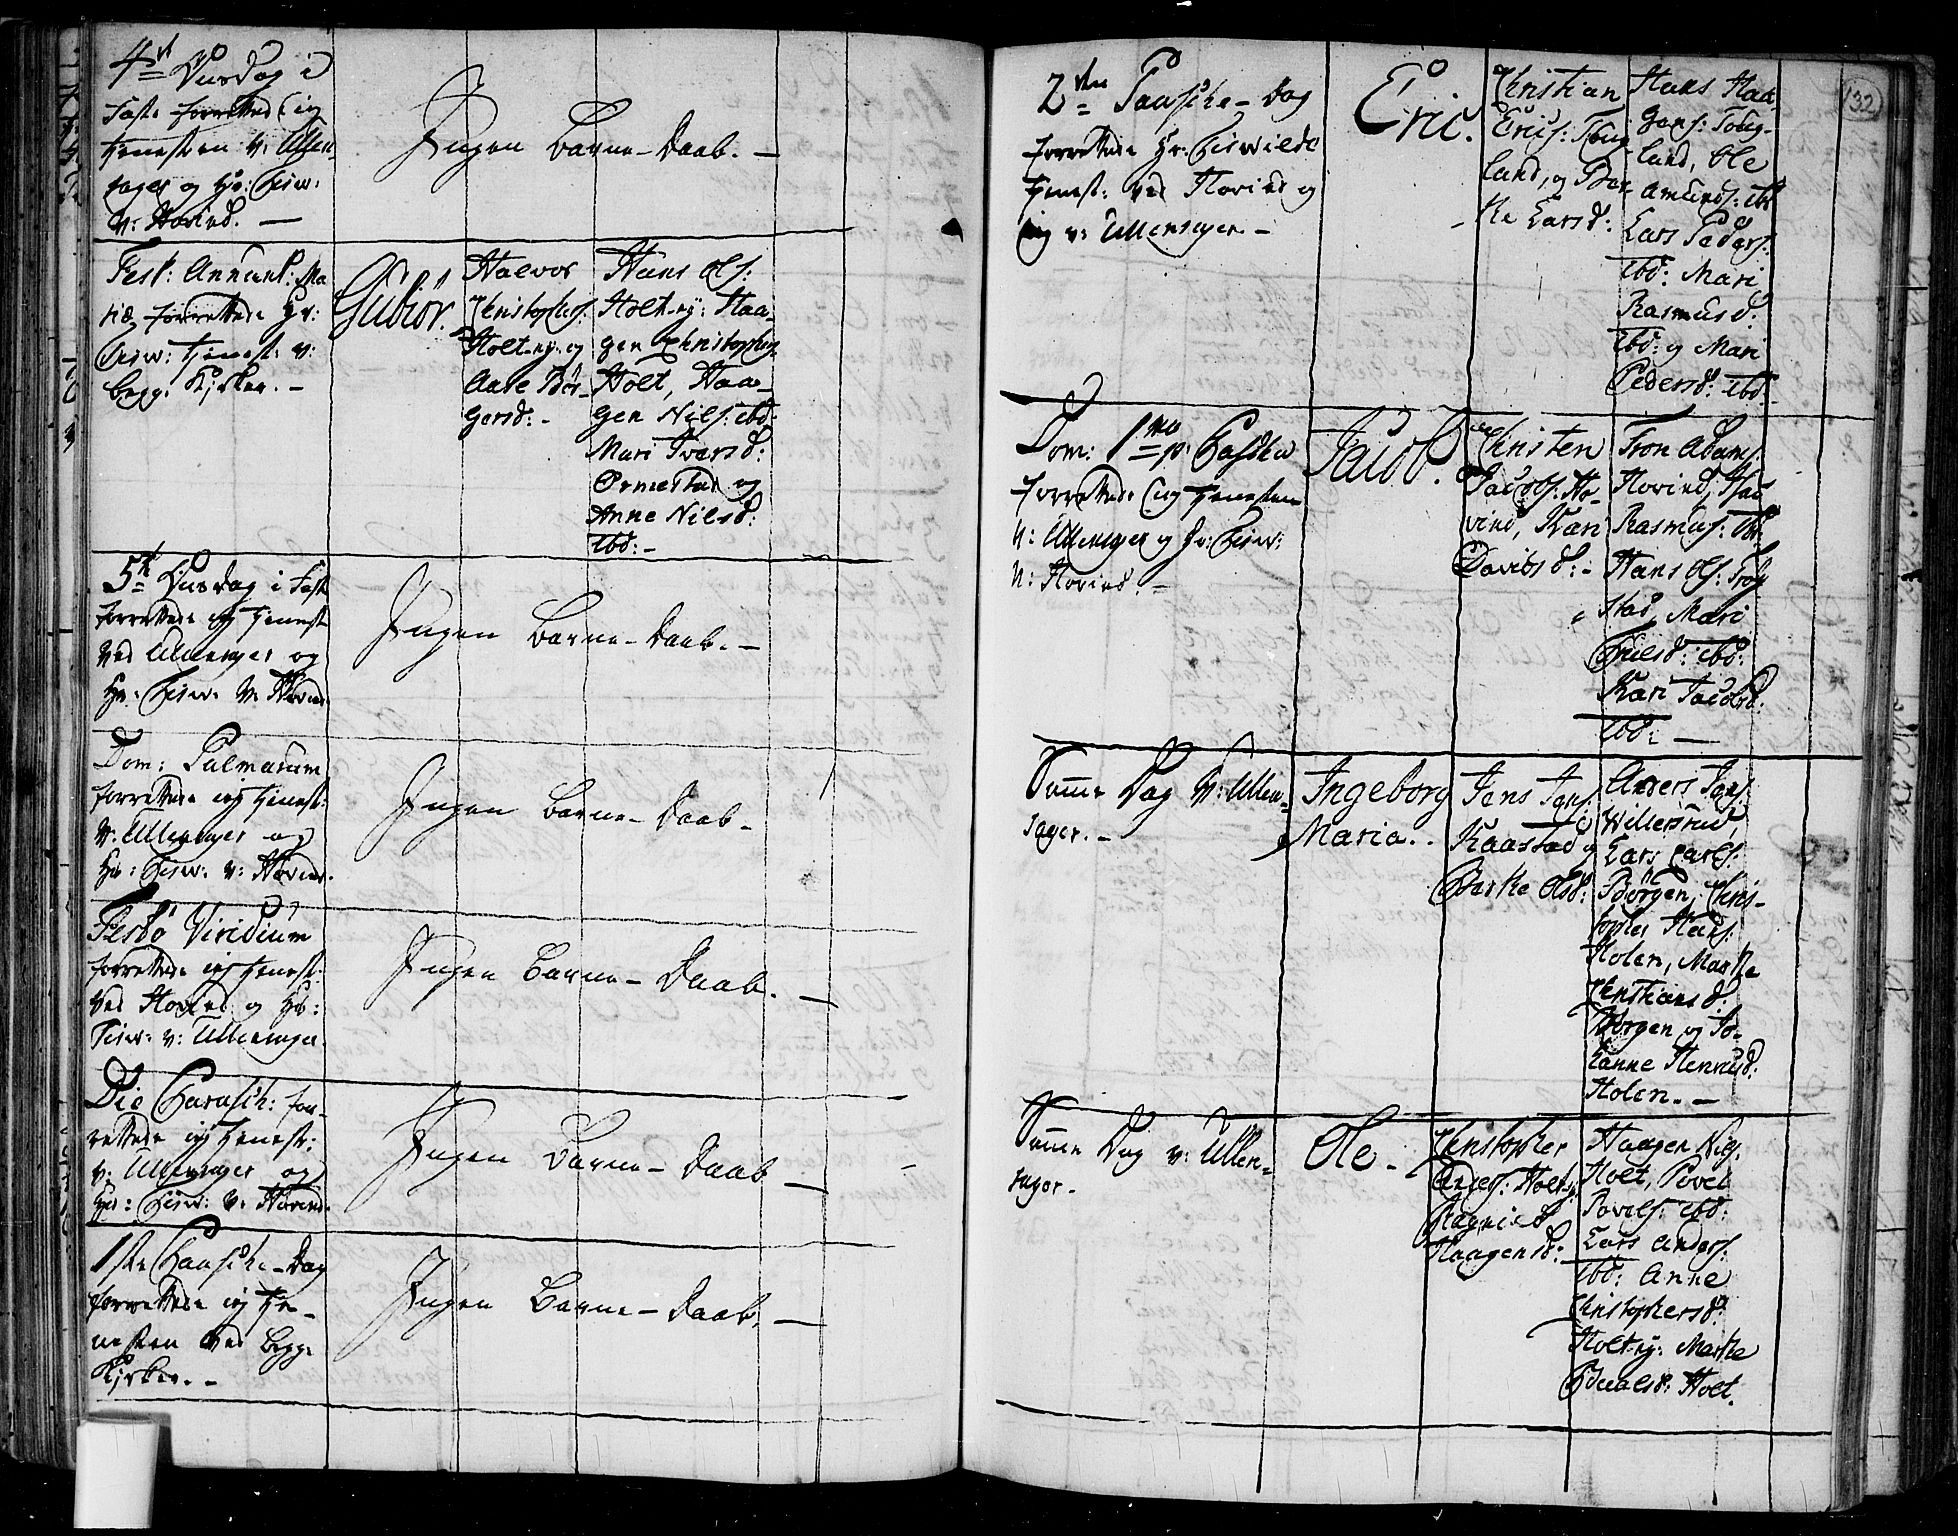 4de Onsdag i
Faste forrettede jeg
tjenesten v: Ullen-
sager og Hr: Fisw:
v: Hovind. —
Ingen Barne-Daab. —
Fest: Annunt: Ma-
riæ forrettede Hr:
Fisw: Tjenest: v:
begge Kirker. —
Gubiør.
Halvor
Christophers:
Holt-ej: og
Aase Bør-
gersd: -
Hans Ols:
Holt-ej: Haa-
gen Christophers:
Holt, Haa-
gen Nils: ibd:
Mari Ivarsd:
Ormestad og
Anne Nilsd:
ibd: -
5te Onsdag i Fast
forrettede jeg Tjenest
ved Ullensager og
Hr: Fisw: v: Hovind
Ingen Barne-Daab. —
Dom: Palmarum
forrettede jeg Tjenest:
v: Ullensager og
Hr: Fisw: v: Hovind.
Ingen Barne-Daab -
Festo Viridium
forrettede jeg Tjenest:
ved Hovind og Hr:
Fisw: v: Ullensager.
Ingen Barne-Daab. —
Die Parasch: for-
rettede jeg Tjenest:
v: Ullensager og
Hr: Fisw: v: Hovind.
Ingen Barne-Daab —
1ste Paasche-Dag
forrettede jeg Tje-
nesten ved begge
Kirker. -
Ingen Barne-Daab. —
132
2den Paasche-Dag
forrettede Hr: Fiswilde
Tjenest: ved Hovind og
jeg v: Ullensager -
Eric.
Christian
Erics:
land, og Ber-
the Larsd:
Hans Haa-
gens:
land, Ole
Amunds: ibd
Lars Peders:
ibd: Mari
Rasmusd:
ibd: og Mari
Pedersd: ibd:
Dom: 1ma p: Pascha
forrettede jeg Tjenesten
v: Ullensager og Hr: Fisw:
v: Hovind. -
Jacob.
Christen
Jacobs: Ho-
vind, Kari
Davidsd: -
Tron Adams:
Hovind,
Rasmus: ibd:
Hans Ols: Trog-
stad, Mari
Trulsd: ibd:
Kari Jacobsd:
ibd: —
Samme Dag v: Ullen-
sager. -
Ingeborg
Maria.
Jens Jens:
Kaastad og
Berthe Olsd:
Anders Jens:
Willerstud,
Lars Larss:
Børgen, Chris-
topher Hans:
Holen, Marthe
Christiansd:
Borgen og Jo-
hanne Henricsd:
Holen. —
Samme Dag v: Ullen-
sager -
Ole -
Christopher
Anders: Holt-ej:
Ragnild
Haagensd:
Haagen Nils:
Holt, Povel
Povels: ibd:
Lars Anders:
ibd: Anne
Christophersd:
Holt-ej: Marthe
Holt.